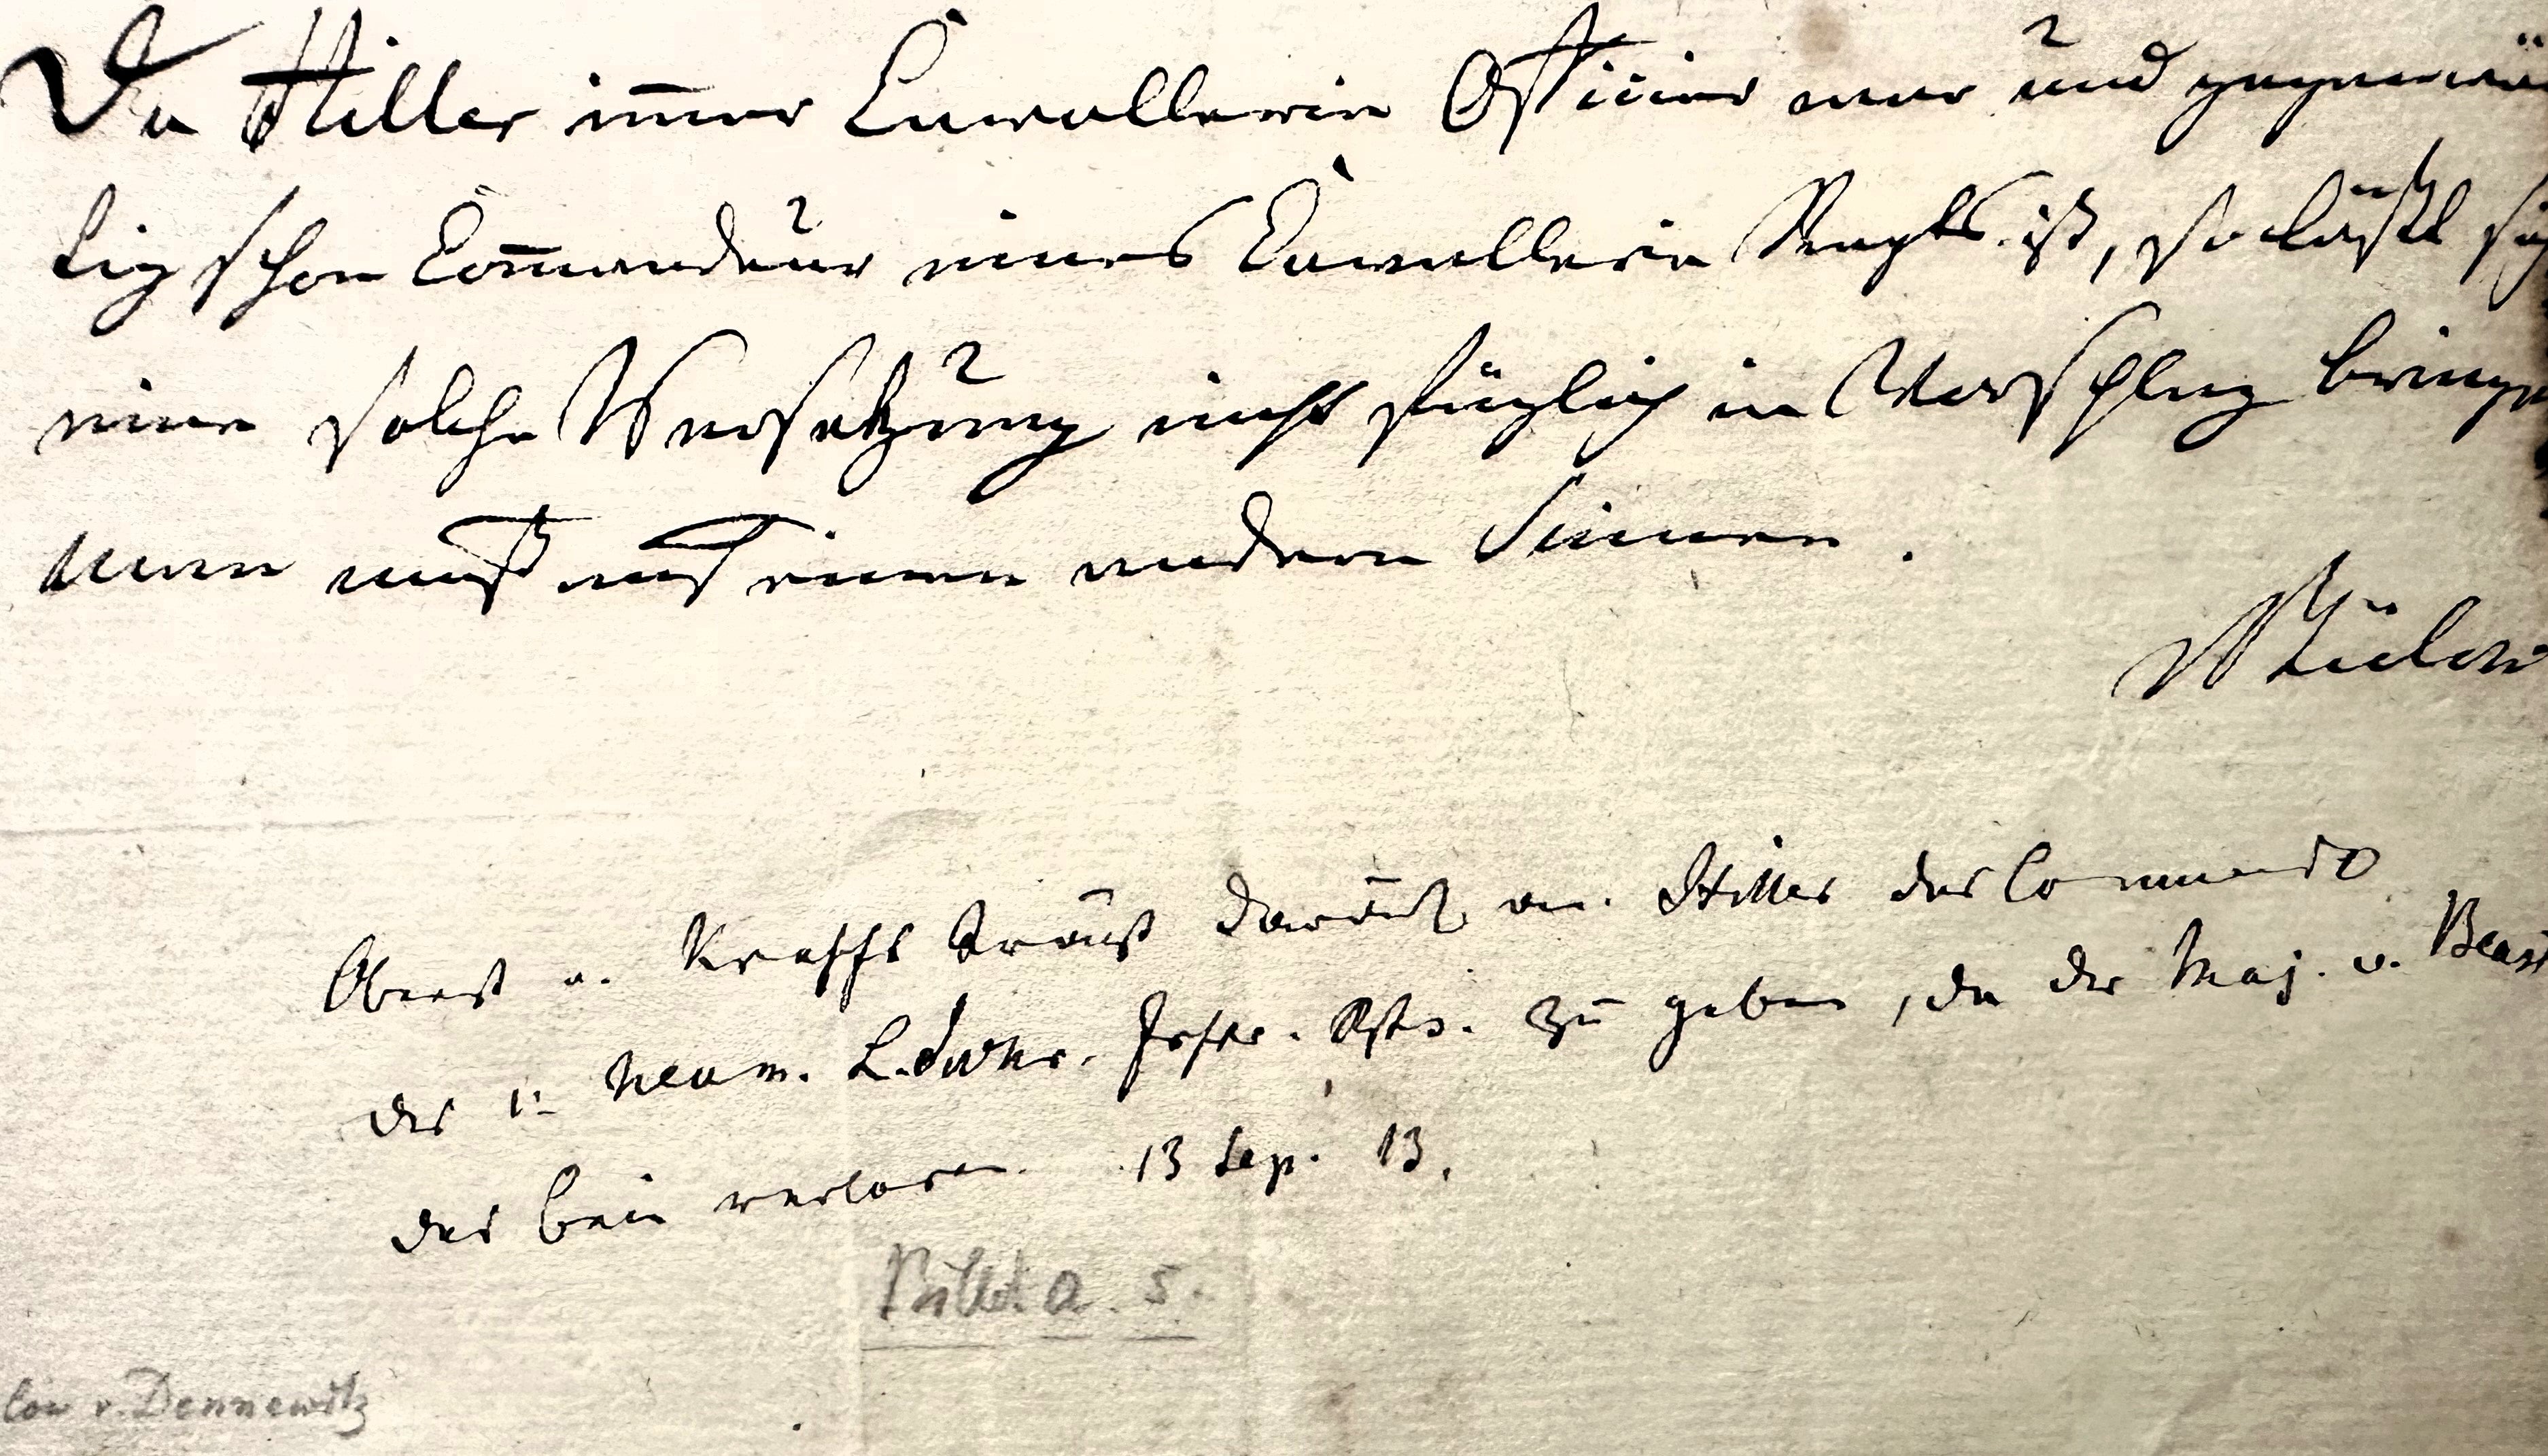 Da Hiller im̄er Cavallerie Officier war und gegenwär
tig schon Com̄andeur eines Cavallerie Regts. ist, so läßt sich
eine solche Versetzung nicht füglich in Vorschlag bringen
Man muß auf einen andern Sinnen.
Bülow
Oberst v. Krafft trägt darauf an. Hiller das Commando
des 1. Neum. L.dwhr. Inftr. Rgts. zu geben, da der Maj. v.
das Bein verloren. 13 Sep. 13.
Billet a. 5.
low v. Dennewitz